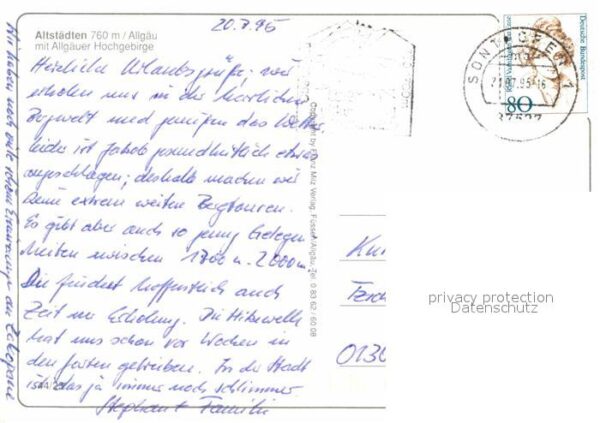 20.7.95
Altstädten 760 m / Allgäu
mit Allgäuer Hochgebirge
Herzliche Urlaubsgrüße; wir
erholen uns in der herrlichen
Bergwelt und genießen das Wetter,
leider ist Jakob gesundheitlich etwas
angeschlagen; deshalb machen wir
keine extrem weiten Bergtouren.
Es gibt aber auch so genug Gelegen
heiten zwischen 1700 u. 2000m.
Ihr findet hoffentlich auch
Zeit zur Erholung. Die Hitzewelle
hat uns schon vor Wochen in
den Garten getrieben. In der Stadt
ist das ja immer noch schlimmer.
Stephan + Familie
Wir haben noch gute schöne Erinnerungen an Zakopane
Copyright by Franz Milz Verlag, Füssen/Allgäu, Tel. 0 83 62 / 60 08
SONTHOFEN 1
21.07.95-16
87527
Deutsche Bundespost
80
Kur
0130
privacy protection
Datenschutz